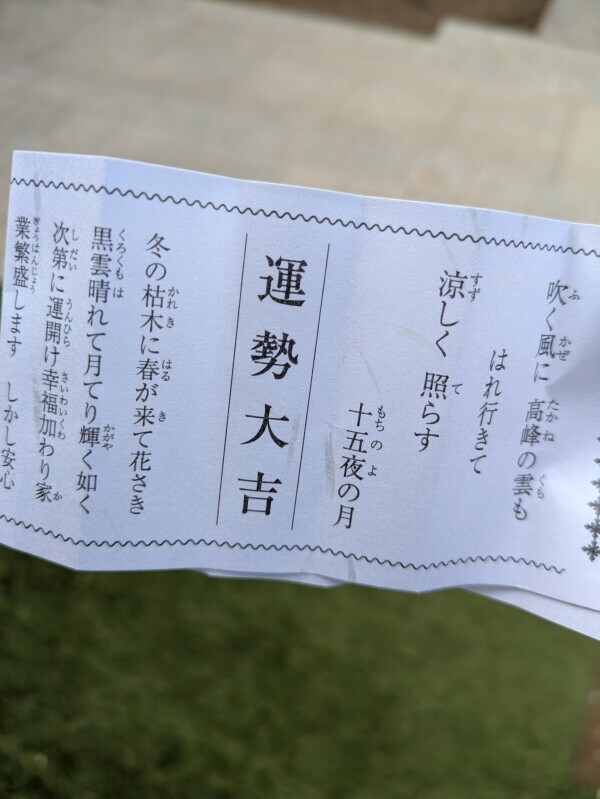 吹く風に 高峰の雲も
はれ行きて
涼しく 照らす
十五夜の月
運勢大吉
冬の枯木に春が来て花さき
黒雲晴れて月てり輝く如く
次第に運開け幸福加わり家
業繁盛します しかし安心